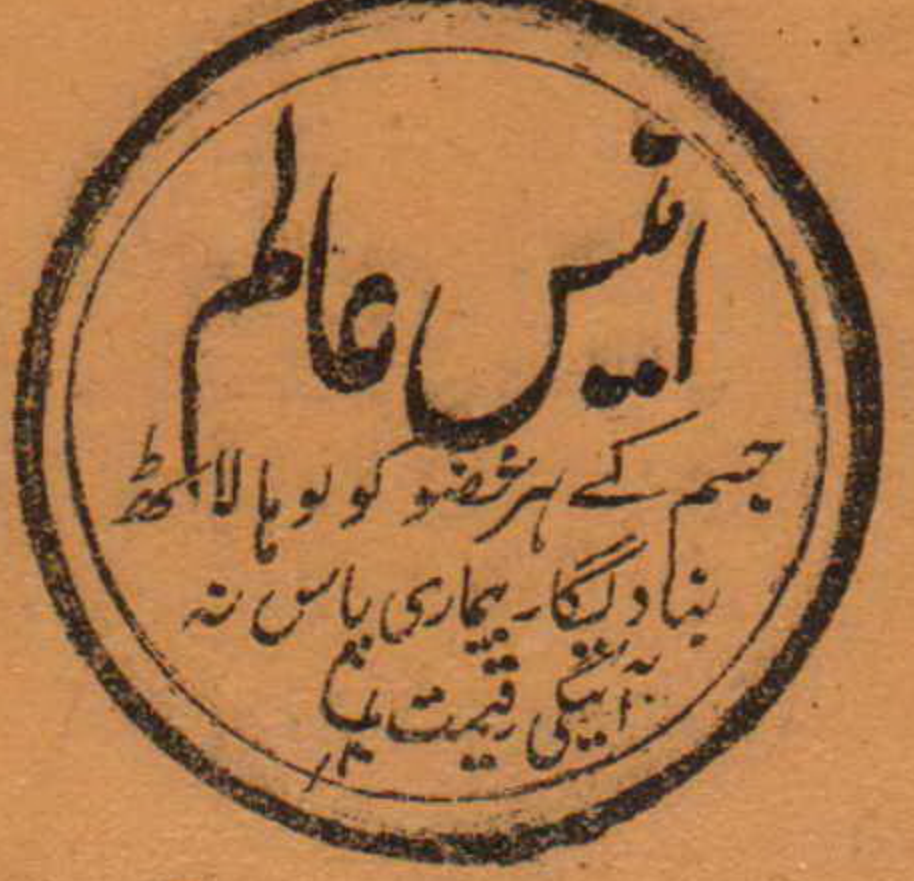 انیس عالم
جسم کے ہر عضو کو لوہا لاٹھ
بنا دیگا۔ بیماری پاس نہ
آئیگی قیمت